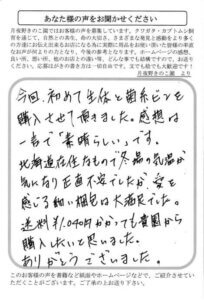 あなた様の声をお聞かせください
月夜野きのこ園ではお客様の声を募集しています。クワガタ・カブトムシ飼
育を通じて、自然との共生、命の大切さ、さまざまな発見と感動をより多く
の方達にお伝え出来るお店になる為に実際に用品をお使い頂いた皆様の率直
な声が何よりの力となり、今後の参考となります。ホームページの感想、
良い所、悪い所、他のお店との違い等、どんな事でも結構ですので、お送り
ください。応募はがきの書き方は一切自由です。文でも絵でも大歓迎です!
月夜野きのこ園 より
今回、初めて生体と菌糸ビンを
購入させて頂きました。感想は
一言で"素晴らしい"です。
北海道在住なもので冬場の気温が
気になり正直不安でしたが愛を
感じる細い梱包は大満足でした。
送料¥1,040円かかっても貴園から
購入したいと思いました。
ありがとうございました。
このお客様の声を書籍など紙面やホームページなどで、ご紹介させていた
だくことがございます。ご了承の上お送り下さい。